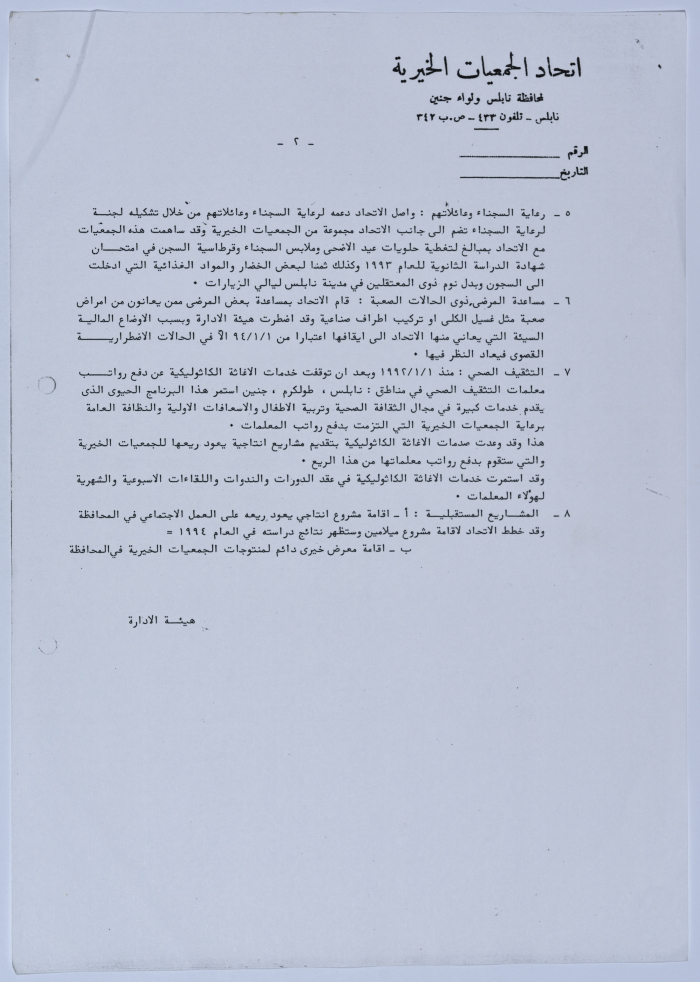 اتحاد الجمعيات الخيرية
لمحافظة نابلس ولواء جنين
نابلس - تلفون ٤٣٣ - ص.ب ٣٤٢
الرقم
التاريخ
- ٢ -
٥ - رعاية السجناء وعائلاتهم : واصل الاتحاد دعمه لرعاية السجناء وعائلاتهم من خلال تشكيله لجنة
لرعاية السجناء تضم الى جانب الاتحاد مجموعة من الجمعيات الخيرية وقد ساهمت هذه الجمعيات
مع الاتحاد بمبالغ لتغطية حلويات عيد الاضحى وملابس السجناء وقرطاسية السجن في امتحان
شهادة الدراسة الثانوية للعام ١٩٩٣ وكذلك ثمنا لبعض الخضار والمواد الغذائية التي ادخلت
الى السجون وبدل نوم ذوى المعتقلين في مدينة نابلس ليالي الزيارات ٠
٦ - مساعدة المرضى ذوى الحالات الصعبة : قام الاتحاد بمساعدة بعض المرضى ممن يعانون من امراض
صعبة مثل غسيل الكلى او تركيب اطراف صناعية وقد اضطرت هيئة الادارة وبسبب الاوضاع المالية
السيئة التي يعاني منها الاتحاد الى ايقافها اعتبارا من ٩٤/١/١ الآ في الحالات الاضطرارية
القصوى فيعاد النظر فيها ٠
٧ - التثقيف الصحي : منذ ١٩٩٢/١/١ وبعد ان توقفت خدمات الاغاثة الكاثوليكية عن دفع رواتب
معلمات التثقيف الصحي في مناطق : نابلس ، طولكرم ، جنين استمر هذا البرنامج الحيوى الذى
يقدم خدمات كبيرة في مجال الثقافة الصحية وتربية الاطفال والاسعافات الاولية والنظافة العامة
برعاية الجمعيات الخيرية التي التزمت بدفع رواتب المعلمات ٠
هذا وقد وعدت خدمات الاغاثة الكاثوليكية بتقديم مشاريع انتاجية يعود ريعها للجمعيات الخيرية
والتي ستقوم بدفع رواتب معلماتها من هذا الريع ٠
وقد استمرت خدمات الاغاثة الكاثوليكية في عقد الدورات والندوات واللقاءات الاسبوعية والشهرية
لهؤلاء المعلمات ٠
٨ - المشاريع المستقبلية : أ - اقامة مشروع انتاجي يعود ريعه على العمل الاجتماعي في المحافظة
وقد خطط الاتحاد لاقامة مشروع ميلامين وستظهر نتائج دراسته في العام ١٩٩٤ =
ب - اقامة معرض خيرى دائم لمنتوجات الجمعيات الخيرية في المحافظة
هيئة الادارة